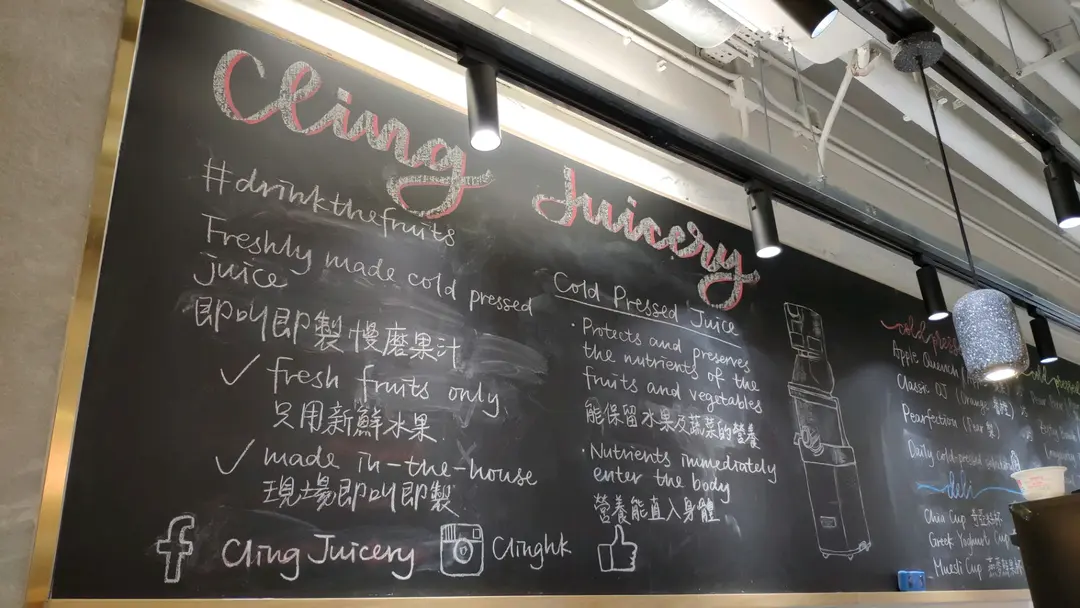 Cling Juicery
#drinkthefruits
Freshly made cold pressed
juice
即叫即製慢磨果汁
✓ fresh fruits only
只用新鮮水果
✓ made in-the-house
現場即叫即製
Cling Juicery
Clinghk
Cold Pressed Juice
· Protects and preserves
the nutrients of the
fruits and vegetables
能保留水果及蔬菜的營養
· Nutrients immediately
enter the body
營養能直入身體
cold press
Apple Quench (Apple
Classic OJ (Orange 香橙)
Pearfection (Pear 梨)
Daily cold-pressed
deli
Chia Cup
Greek Yoghurt Cup
Muesli Cup
cold-pressed